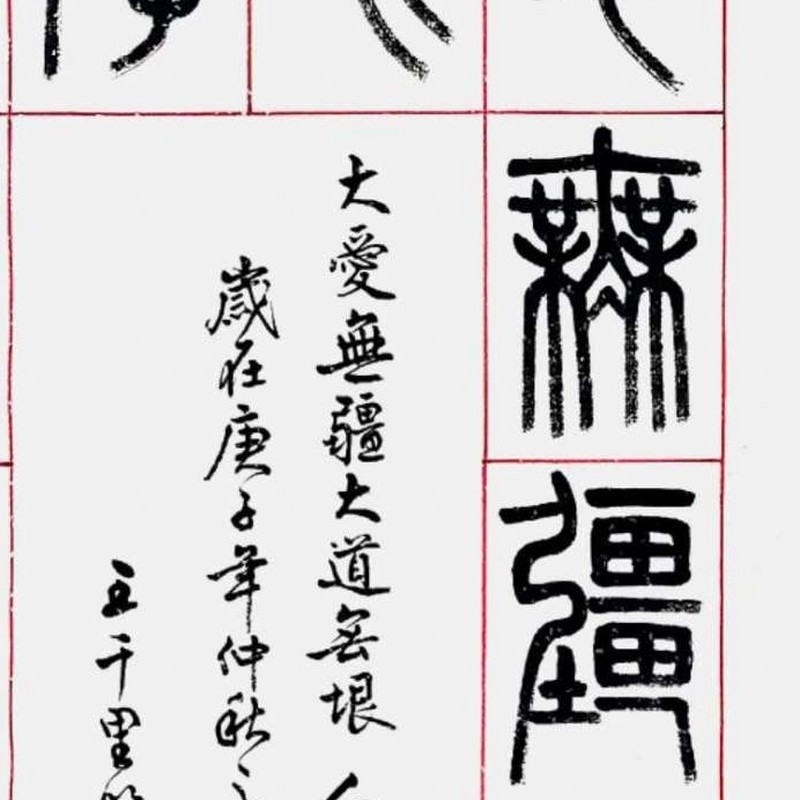 無疆
大愛無疆大道無垠
歲在庚子年仲秋之
五千里